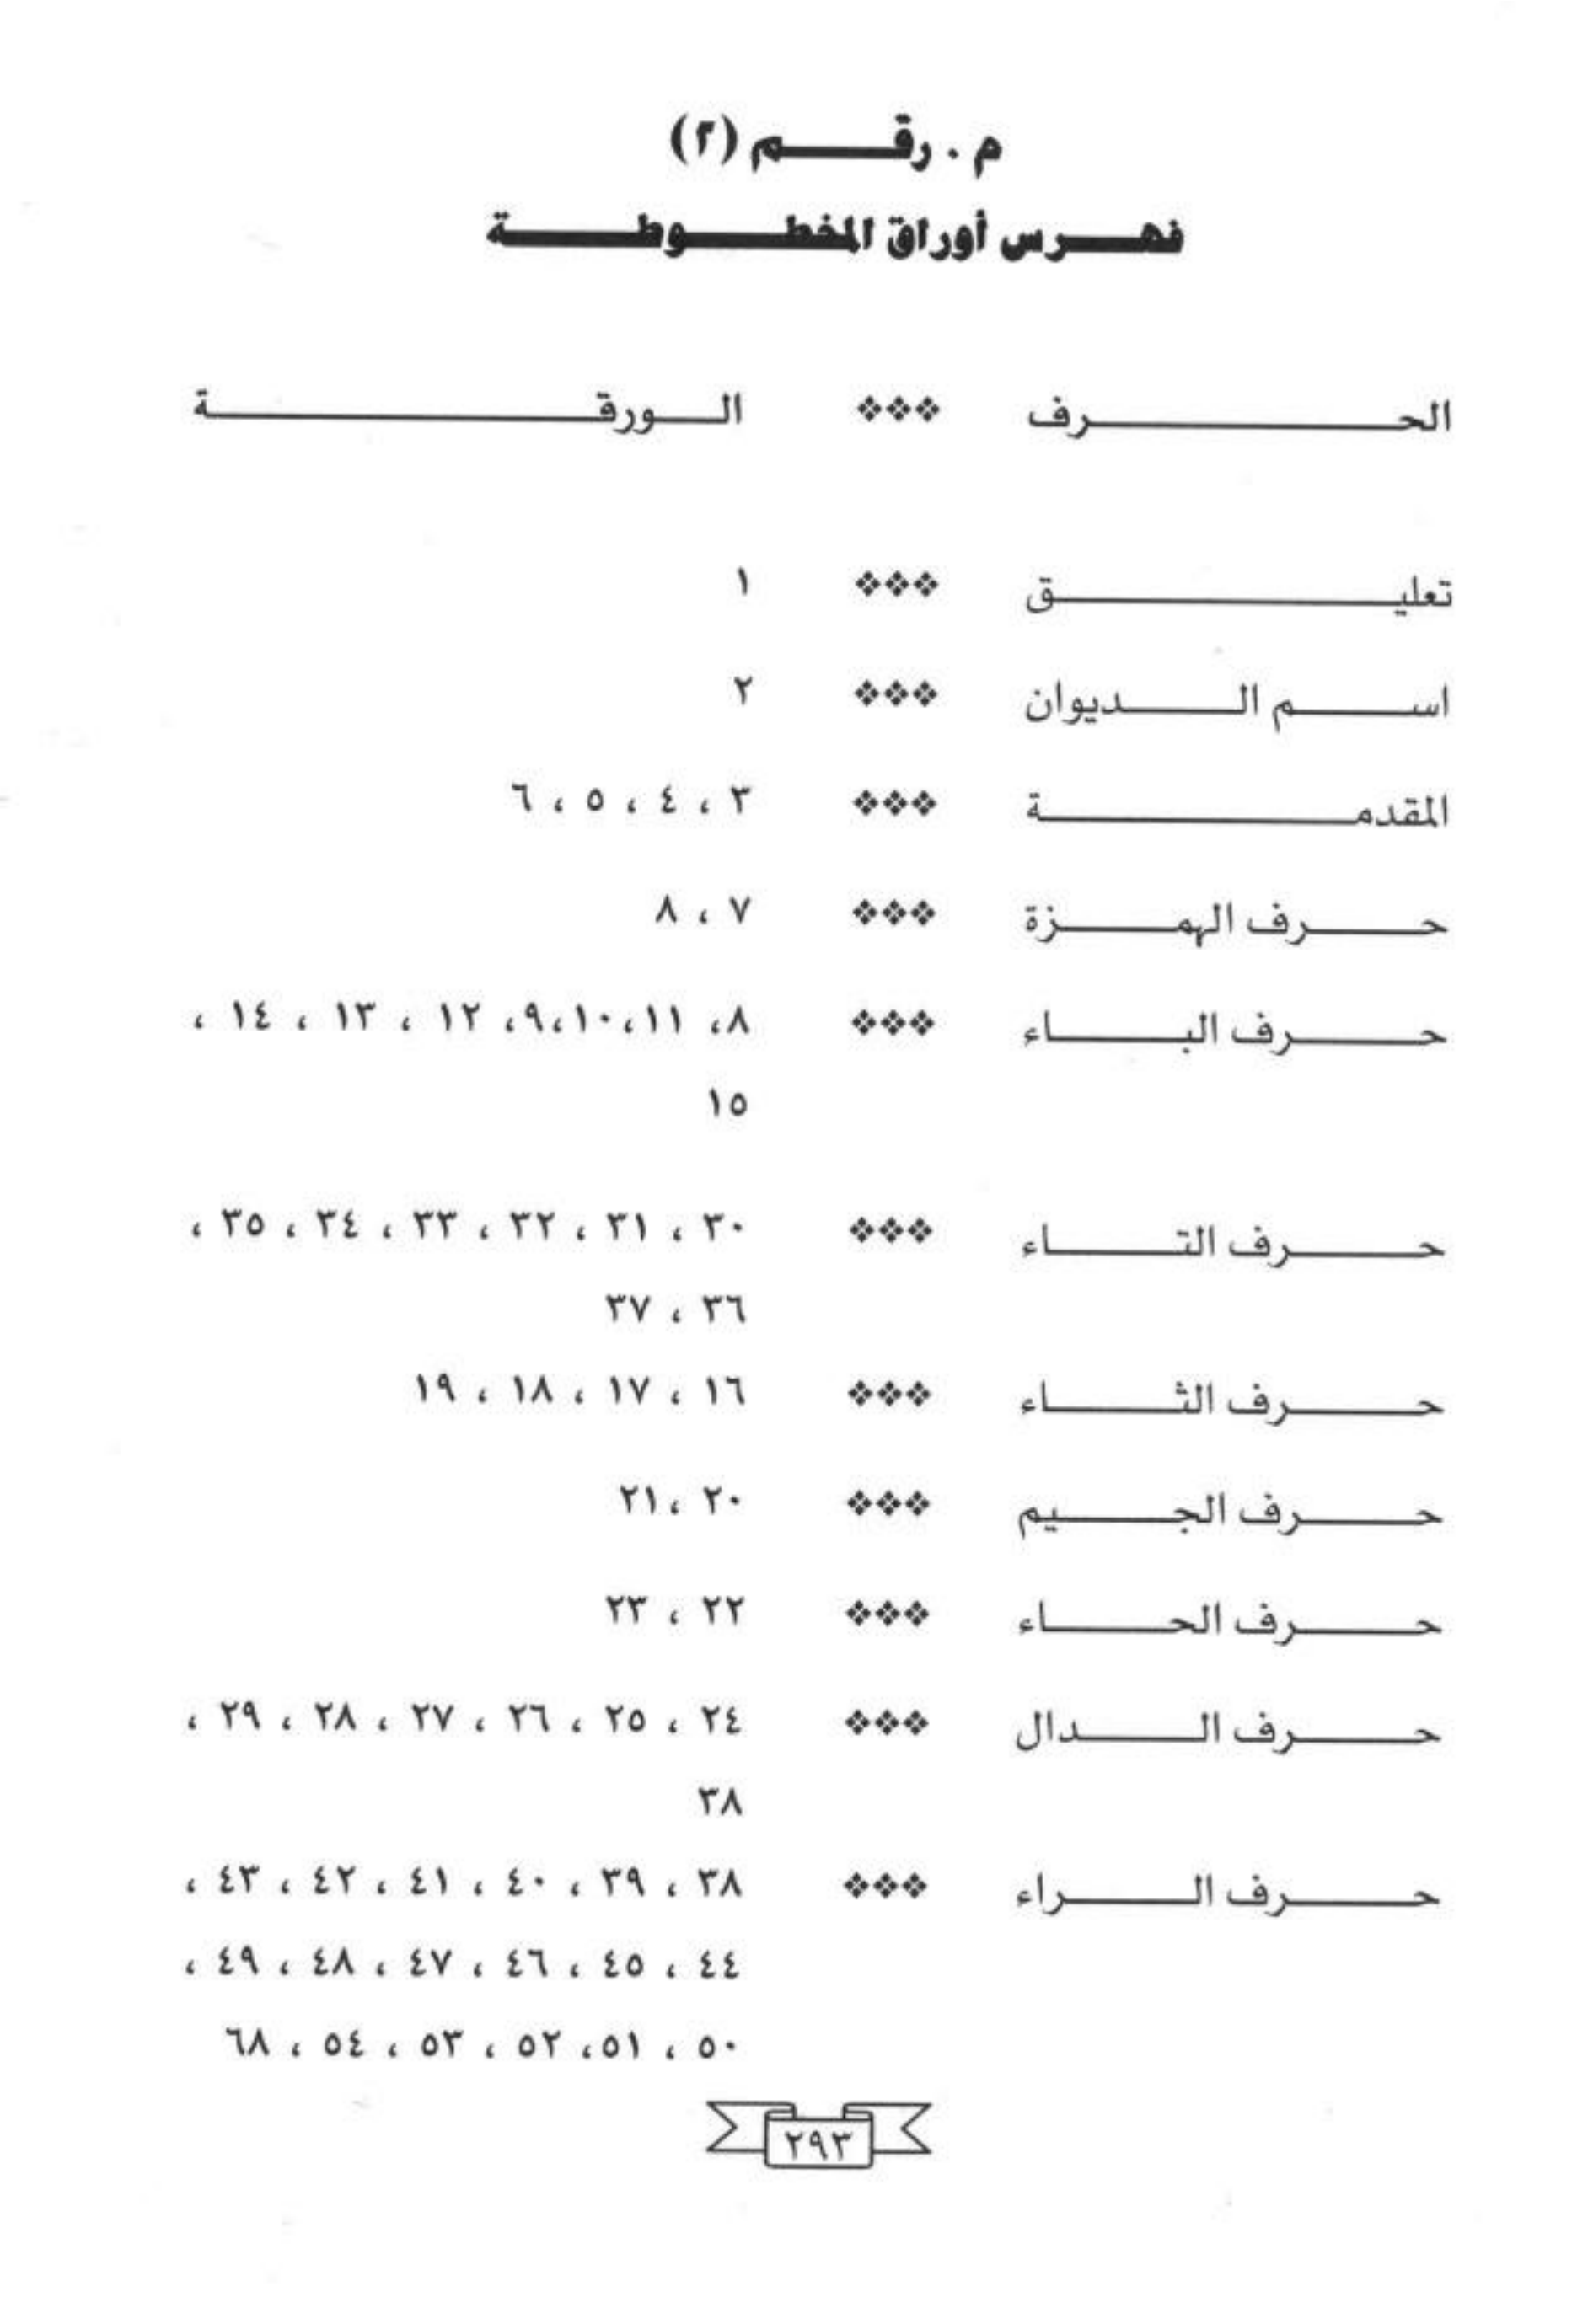 م . رقم (٢)
فهرس أوراق المخطوطة
الحرف ❖❖❖ الورقة
تعليق ❖❖❖ ١
اسم الديوان ❖❖❖ ٢
المقدمة ❖❖❖ ٣ ، ٤ ، ٥ ، ٦
حرف الهمزة ❖❖❖ ٧ ، ٨
حرف الباء ❖❖❖ ٨، ١١،١٠،٩، ١٢ ، ١٣ ، ١٤ ،
١٥
حرف التاء ❖❖❖ ٣٠ ، ٣١ ، ٣٢ ، ٣٣ ، ٣٤ ، ٣٥ ،
٣٦ ، ٣٧
حرف الثاء ❖❖❖ ١٦ ، ١٧ ، ١٨ ، ١٩
حرف الجيم ❖❖❖ ٢٠ ،٢١
حرف الحاء ❖❖❖ ٢٢ ، ٢٣
حرف الدال ❖❖❖ ٢٤ ، ٢٥ ، ٢٦ ، ٢٧ ، ٢٨ ، ٢٩ ،
٣٨
حرف الراء ❖❖❖ ٣٨ ، ٣٩ ، ٤٠ ، ٤١ ، ٤٢ ، ٤٣ ،
٤٤ ، ٤٥ ، ٤٦ ، ٤٧ ، ٤٨ ، ٤٩ ،
٥٠ ، ٥١، ٥٢ ، ٥٣ ، ٥٤ ، ٦٨
٢٩٣